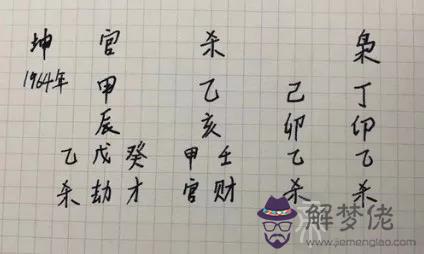 坤 官 杀 枭
1964年 甲 乙 己 丁
辰 亥 卯 卯
乙 戊 癸 甲 壬 乙 乙
杀 劫 才 官 财 杀 杀
解梦佬
www.jiemenglao.com